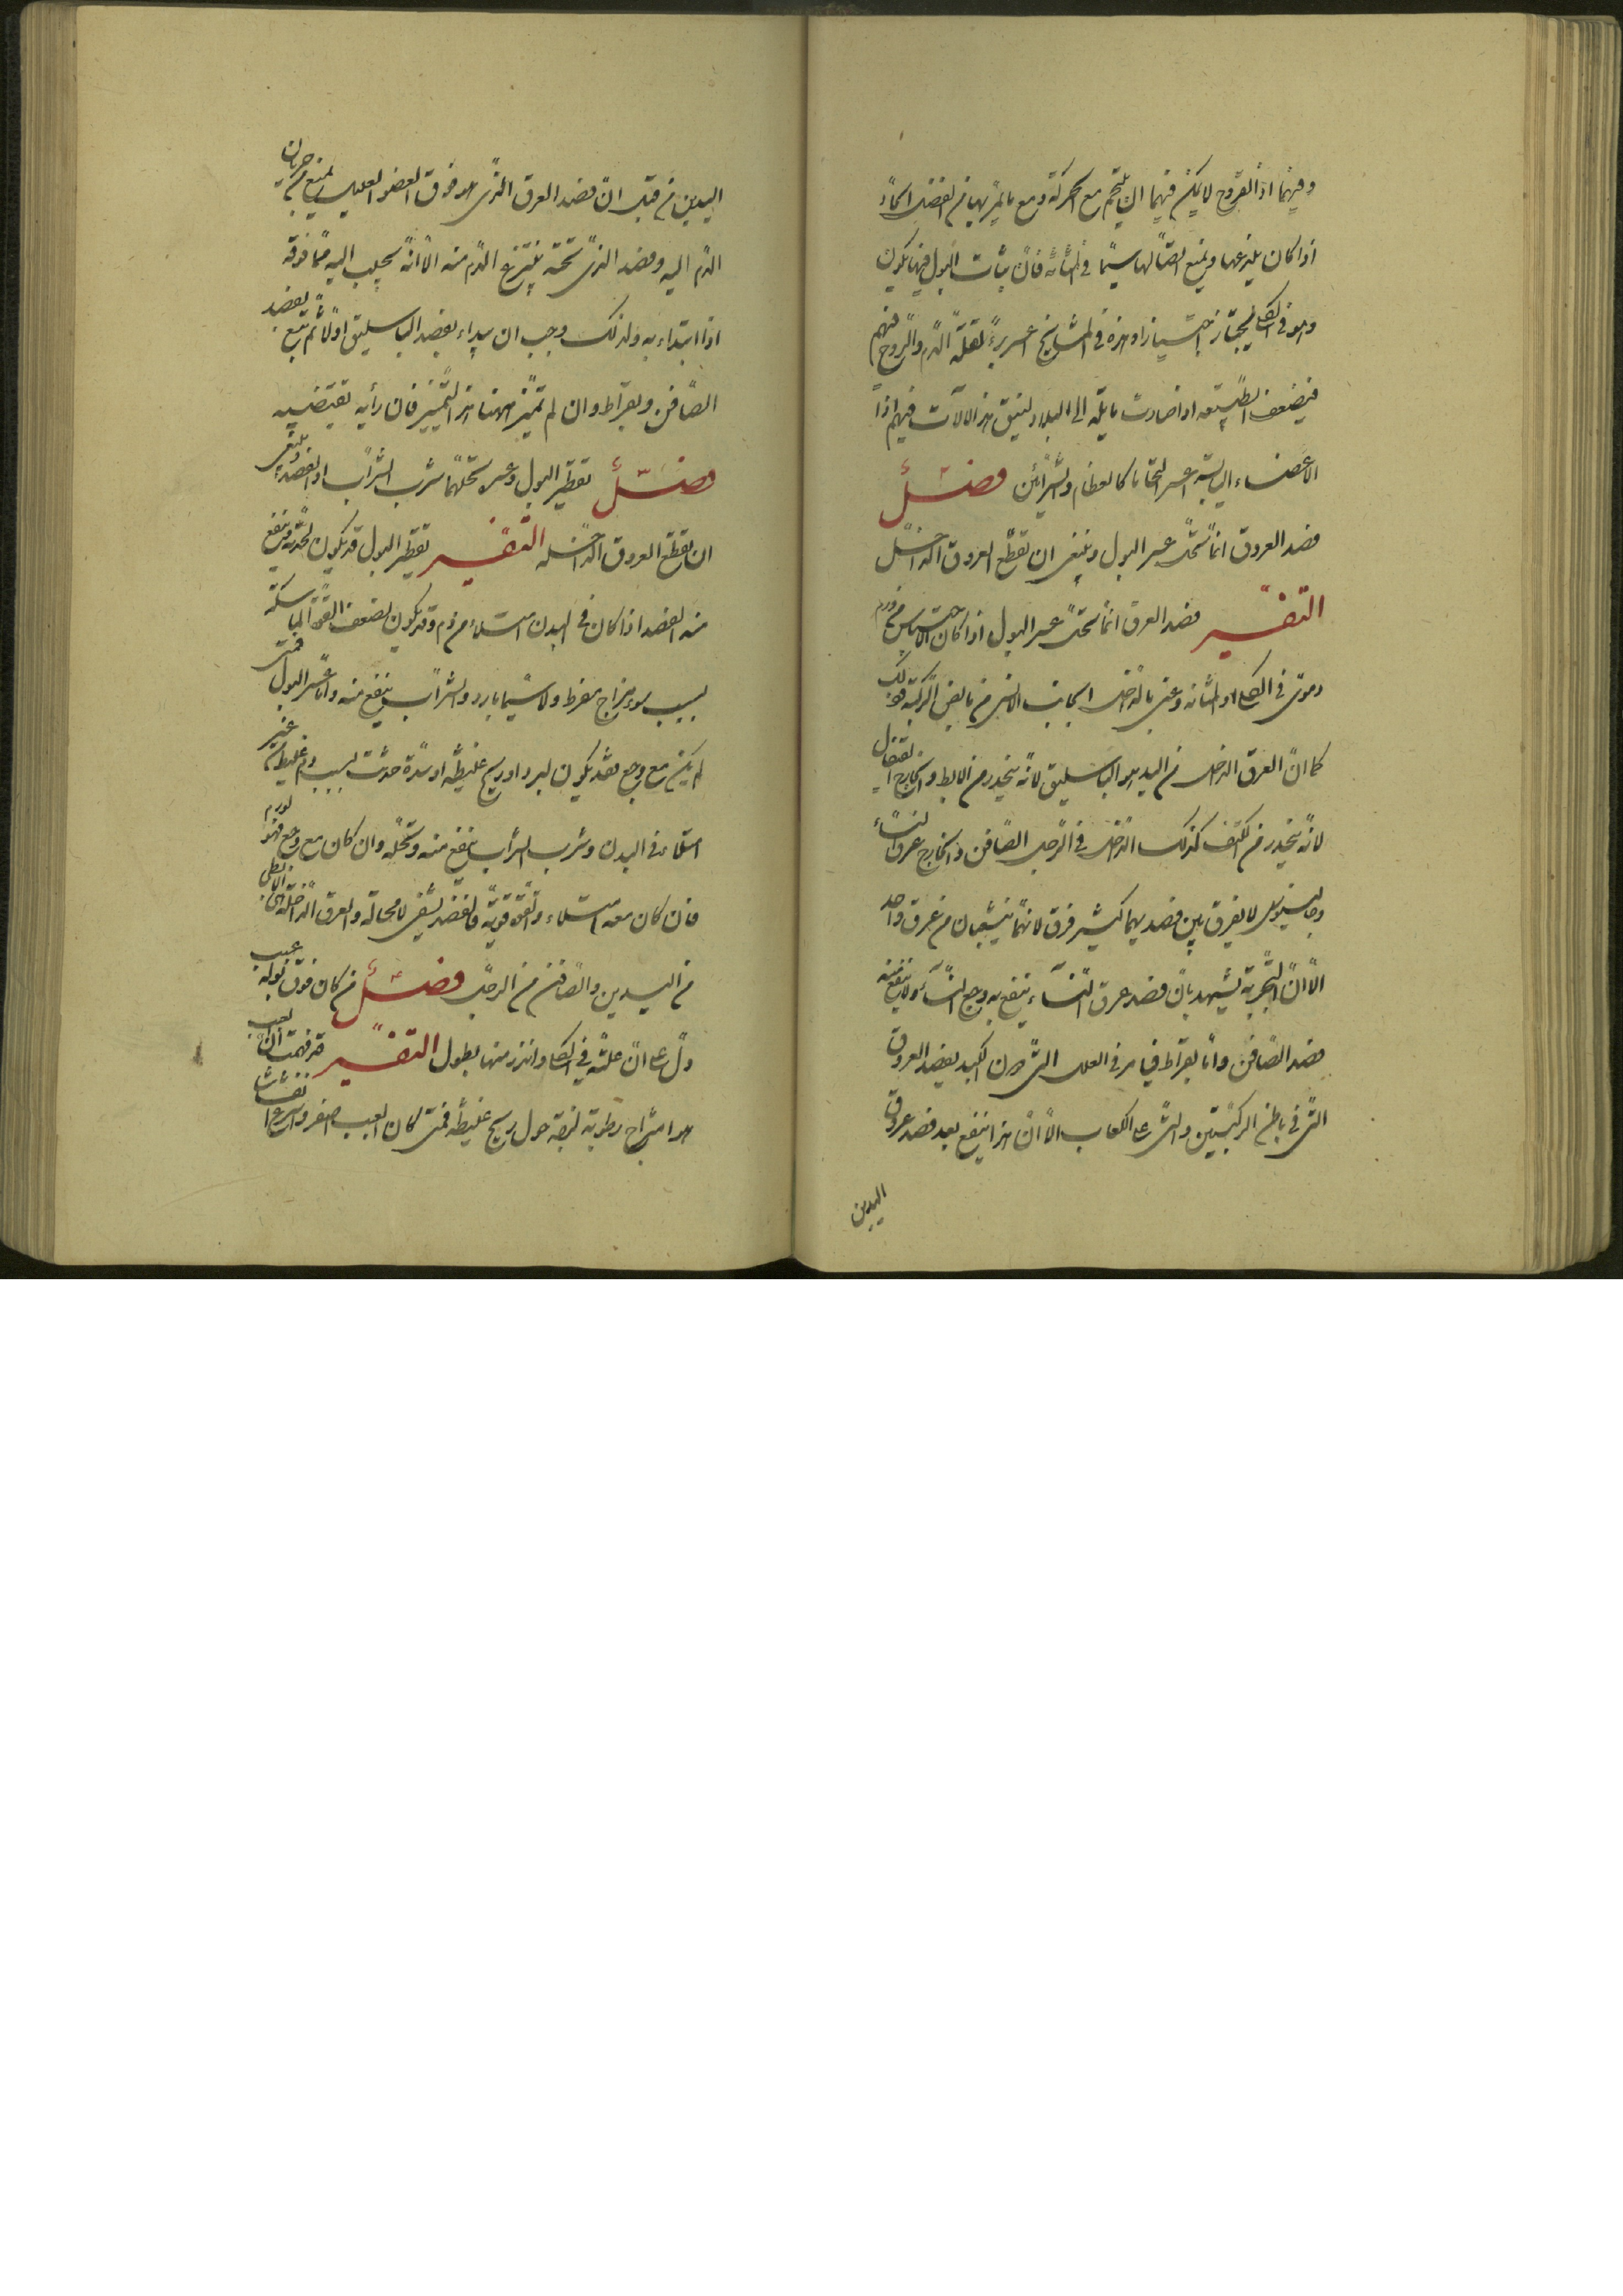 وفيهما اذ القروح لا يمكن فيهما ان يلتحم مع الحركة ومع ما يمر بها من الفضل الحاد
اذا كان يلذعها ويمنع اتصالها سيما في المثانة فان ثبات البول فيها يكون
وهو في الكلى يجتاز اجتيازا وهذه في المشايخ اعسر برءا لقلة الدم والروح فيهم
فيضعف الطبيعة اذا صارت مايلة الى البلاد ليبق هذا الآلات فيهم اذا
الاعضاء اليابسة اعسر التحاما كالعظام والشرائين فصل
فصد العروق انما يحل عسر البول وينبغي ان تقطع العروق الداخل
التفسير فصد العرق انما يحل عسر البول اذا كان الاحتباس من ورم
دموي في الكلى او المثانة وعنى بالداخل الجانب الانسي من مابض الركبة وذلك
كما ان العرق الداخل من اليد هو الباسليق لانه ينحدر من الابط والخارج القيفال
لانه ينحدر من الكتف كذلك الداخل في الرجل الصافن والخارج عرق النساء
وجالينوس لا يفرق بين فصديهما كثير فرق لانهما ينشعبان من عرق واحد
الا ان التجربة تشهد بان فصد عرق النساء ينفع به وجع النساء ولا ينفع منه
فصد الصافن واما بقراط في العلل التي دون الكبد يفصد العروق
التي في باطن الركبتين والتي على الكعاب الا ان هذا ينفع بعد فصد عروق
اليدين
اليدين من قبل ان فصد العرق الذي هو فوق العضو العليل يمنع من جريان
الدم اليه وفصد الذي تحته ينتزع الدم منه الا انه يجلب اليه مما فوقه
اذا ابتداء به ولذلك وجب ان يبداء بفصد الباسليق اولا ثم يتبع بفصد
الصافن وبقراط وان لم تميز ههنا هذا التمييز فان رأيه تقتضيه
فصل تقطير البول وعسره يحلهما شرب الشراب او الفصد وينبغي
ان تقطع العروق الداخلة التفسير تقطير البول قد يكون لحدته وينفع
منه الفصد اذا كان في البدن امتلاء من دم وقد يكون لضعف القوة الماسكة
بسبب سوء مزاج مفرط ولا سيما بارد والشراب ينفع منه واما عسر البول فمتى
لم يكن مع وجع فقد يكون لبرد او ريح غليظة او سدة حدثت بسبب دم غليظ من غير
امتلاء في البدن وشرب الشراب ينفع منه ويحله وان كان مع وجع فهو لورم
فان كان معه امتلاء والقوة قوية فالفصد يشفي لا محالة والعرق الداخلة هي الابطي
من اليدين والصافن من الرجل فصل من كان فوق بوله عبب
دل على ان علته في الكلى وانذر منها بطول التفسير قد فهمت ان العبب
هو امتزاج رطوبة لزجة حول ريح غليظة فمتى كان العبب اصغر واسرع انفشاشا